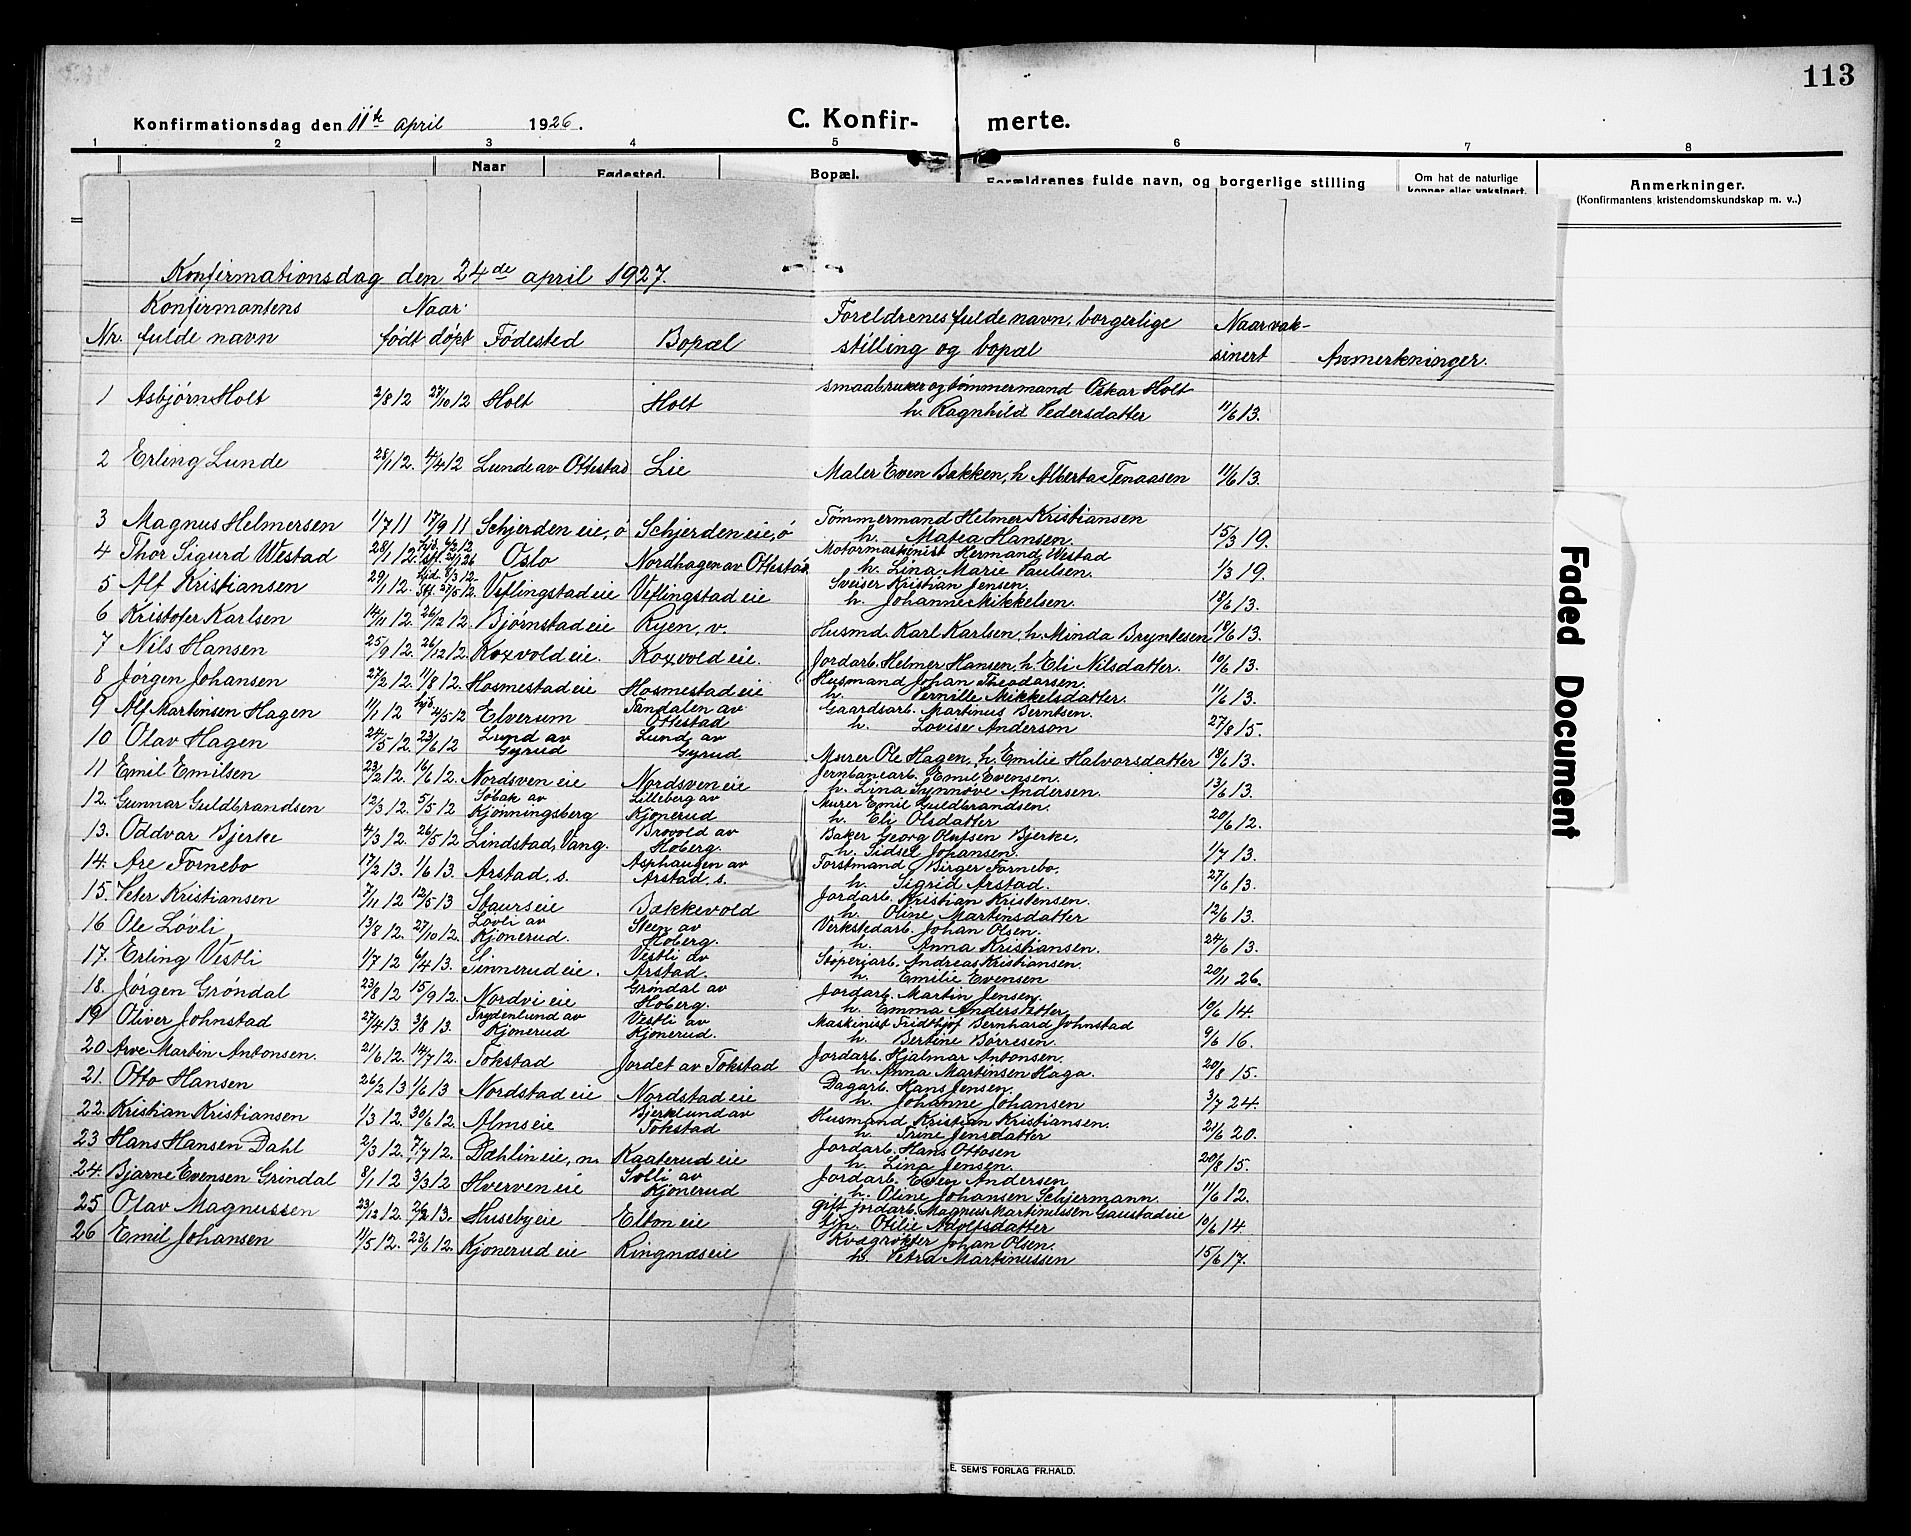 113
Konfirmationsdag den 11te april 1926. C. Konfir- merte.
1 2 3 4 5 6 7 8
Naar Fødested. Bopæl. Forældrenes fulde navn, og borgerlige stilling Om hat de naturlige kopper eller vaksinert. Anmerkninger.
(Konfirmantens kristendomskundskap m. v..)
Konfirmationsdag den 24de april 1927.
Konfirmantens Naar: Foreldrenes fulde navn, borgerlige Naar vak-
Nr. fulde navn født døpt Fødested Bopæl stilling og bopæl sinert Anmerkninger.
1 Asbjørn Holt 2/8 12 27/10 12 Holt Holt smaabruker og tømmermand Oskar Holt
h. Ragnhild Pedersdatter 11/6 13.
2 Erling Lunde 28/1 12. 4/4 12 Lunde av Ottestad Lie Maler Even Bakken, h Alberta Tenaasen 11/6 13.
3 Magnus Helmersen 1/7 11 17/9 11 Schjerden eie, ø Schjerden eie, ø Tømmermand Helmer Kristiansen
h. Matea Hansen. 15/3 19.
4 Thor Sigurd Westad 28/1 12. hjd. 6/2 12 stf. 21/1 26 Oslo Nordhagen av Ottestad Motormaskinist Hermand Westad
h. Lina Marie Paulsen. 1/3 19.
5 Alf Kristiansen 29/1 12. hjd 8/3 12. Stf. 27/5 12. Veflingstad eie Veflingstad eie Sveiser Kristian Jensen.
h. Johanne Mikkelsen. 18/6 13.
6 Kristofer Karlsen 14/11 12. 26/12 12. Bjørnstad eie Ryen, v. Husmd. Karl Karlsen, h. Minda Bryntesen 18/6 13.
7 Nils Hansen 25/9 12. 26/12 12. Koxvold eie. Koxvold eie. Jordarb. Helmer Hansen, h. Eli Nilsdatter. 10/6 13.
8 Jørgen Johansen 27/2 12. 11/8 12. Hosmestad eie Hosmestad eie Husmand Johan Theodorsen.
h. Pernille Mikkelsdatter. 11/6 13.
9 Alf Martinsen Hagen 11/1 12 hjd. 4/5 12 Elverum Sandalen av Ottestad Gaardsarb. Martinus Berntsen.
h. Lovise Anderson 27/8 15.
10 Olav Hagen 24/5 12. 23/6 12 Lund av Gyrud Lund av Gyrud Murer Ole Hagen, h. Emilie Halvorsdatter 18/6 13.
11 Emil Emilsen 23/2 12. 16/6 12. Nordsven eie Nordsven eie Jernbanearb. Emil Evensen.
h. Lina Synnøve Andersen. 13/6 13.
12. Gunnar Guldbrandsen 12/3 12. 5/5 12 Søbak av Kjønningsberg Lilleberg av Kjonerud Murer Emil Guldbrandsen.
h. Eli Olsdatter 20/6 12.
13. Oddvar Bjerke 4/3 12. 26/5 12 Lindstad, Vang. Brovold av Hoberg. Baker Georg Olufsen Bjerke,
h. Sidsel Johansen. 1/7 13.
14. Are Fornebo 17/2 13. 1/6 13. Arstad, s. Asphaugen av Arstad, s. Forstmand Birger Fornebo,
h. Sigrid Arstad. 27/6 13.
15. Peter Kristiansen 7/11 12 12/5 13 Staurseie Bakkevold Jordarb. Kristian Kristensen.
h. Oline Martinsdatter 12/6 13.
16 Ole Løvli 13/8 12. 27/10 12. Løvli av Kjonerud. Steen av Hoberg. Verkstedarb. Johan Olsen.
h. Anna Kristiansen. 24/6 13.
17. Erling Vestli 1/7 12 6/4 13. Sinnerud eie. Vestli av Arstad. Støperiarb. Andreas Kristiansen.
h. Emilie Evensen 20/11 26.
18. Jørgen Grøndal 23/8 12 15/9 12. Nordvi eie Grøndal av Hoberg. Jordarb. Martin Jensen.
h. Emma Andersdatter 10/6 14.
19 Oliver Johnstad 27/4 13. 3/8 13. Frydenlund av Kjonerud Vestli av Kjonerud. Maskinist Fridthjof Bernhard Johnstad
h. Bertine Børresen 9/6 16.
20 Arve Martin Antonsen. 21/6 12. 14/7 12. Tokstad Jordet av Tokstad Jordarb. Hjalmar Antonsen.
h. Anna Martinsen Haga. 20/8 15.
21. Otto Hansen 26/2 13 1/6 13 Nordstad eie Nordstad eie Dagarb. Hans Jensen
h. Johanne Johansen 3/7 24.
22. Kristian Kristiansen 1/3 12. 30/6 12. Almseie Bjerklund av Tokstad Husmand Kristian Kristiansen.
h. Trine Jensdatter 21/6 20.
23 Hans Hansen Dahl 2/3 12. 7/7 12. Dæhlin eie, n. Kaaterud eie Jordarb. Hans Ottosen
h. Lina Jensen. 20/8 15.
24. Bjarne Evensen Grindal 8/1 12 3/3 12 Hverven eie Solli av Kjonerud Jordarb. Even Andersen
h. Oline Johansen Schjermann. 11/6 12.
25 Olav Magnussen 23/12 12. 2/2 13. Husebyeie Elton eie Gift jordarb. Magnus Martinussen Gaustadeie
Ep. Otilie Adolfsdatter 10/6 14.
26 Emil Johansen 11/5 12. 23/6 12. Kjonerud eie Ringnæseie Kvægrøkter Johan Olsen.
h. Petra Martinussen 15/6 17.
Faded Document
E. SEM'S FORLAG FR.HALD.